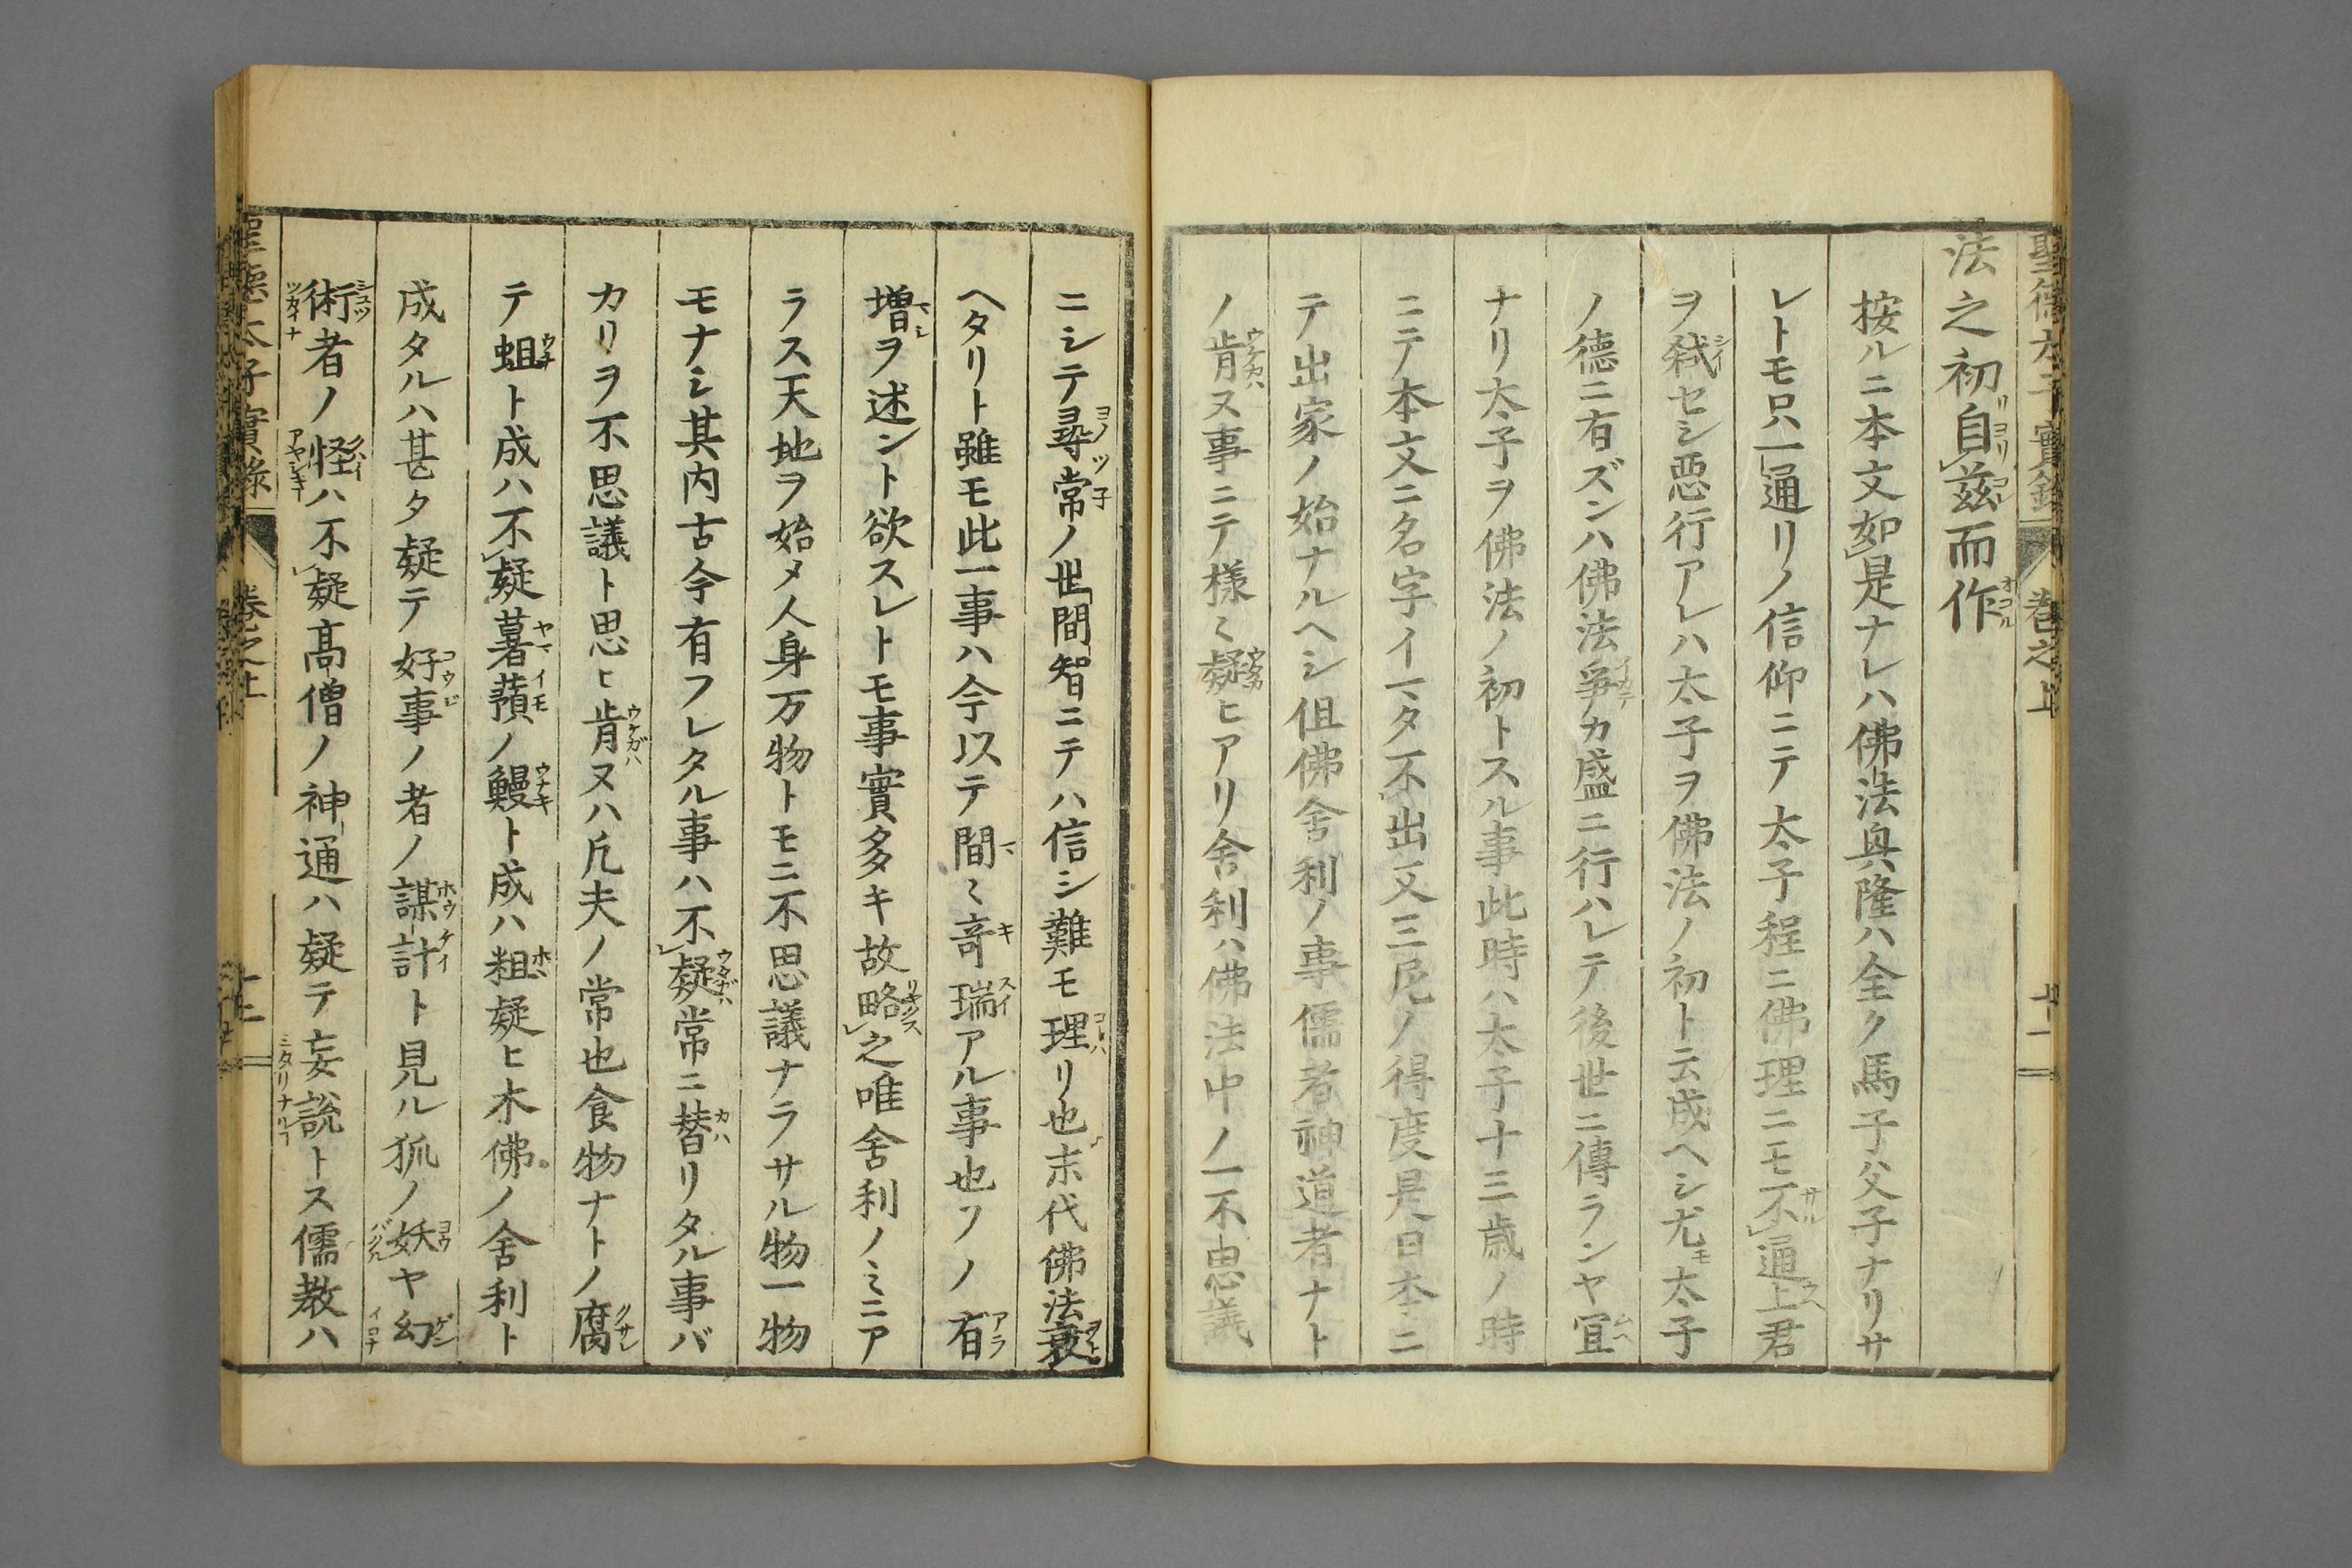 聖德太子實錄 卷之上 十一
法之初自茲而作
按ルニ本文如是ナレハ佛法興隆ハ全ク馬子父子ナリサ
レトモ只一通リノ信仰ニテ太子程ニ佛理ニモ不通上君
ヲ弑セシ惡行アレハ太子ヲ佛法ノ初ト云成ヘシ尤太子
ノ德ニ有ズンハ佛法爭カ盛ニ行ハレテ後世ニ傳ランヤ宜
ナリ太子ヲ佛法ノ初トスル事此時ハ太子十三歳ノ時
ニテ本文ニ名字イマタ不出又三尼ノ得度是日本ニ
テ出家ノ始ナルヘシ但佛舍利ノ事儒者神道者ナト
ノ肯ヌ事ニテ樣〻疑ヒアリ舍利ハ佛法中ノ一不思議
ニシテ尋常ノ世間智ニテハ信シ難モ理リ也末代佛法衰
ヘタリト雖モ此一事ハ今以テ間〻竒瑞アル事也ソノ有
増ヲ述ント欲スレトモ事實多キ故略之唯舍利ノミニア
ラス天地ヲ始メ人身万物トモニ不思議ナラサル物一物
モナシ其内古今有フレタル事ハ不疑常ニ替リタル事バ
カリヲ不思議ト思ヒ肯ヌハ凡夫ノ常也食物ナトノ腐
テ蛆ト成ハ不疑薯蕷ノ鰻ト成ハ粗疑ヒ木佛ノ舍利ト
成タルハ甚タ疑テ好事ノ者ノ謀計ト見ル狐ノ妖ヤ幻
術者ノ怪ハ不疑髙僧ノ神通ハ疑テ妄説トス儒教ハ
聖德太子實錄 卷之上